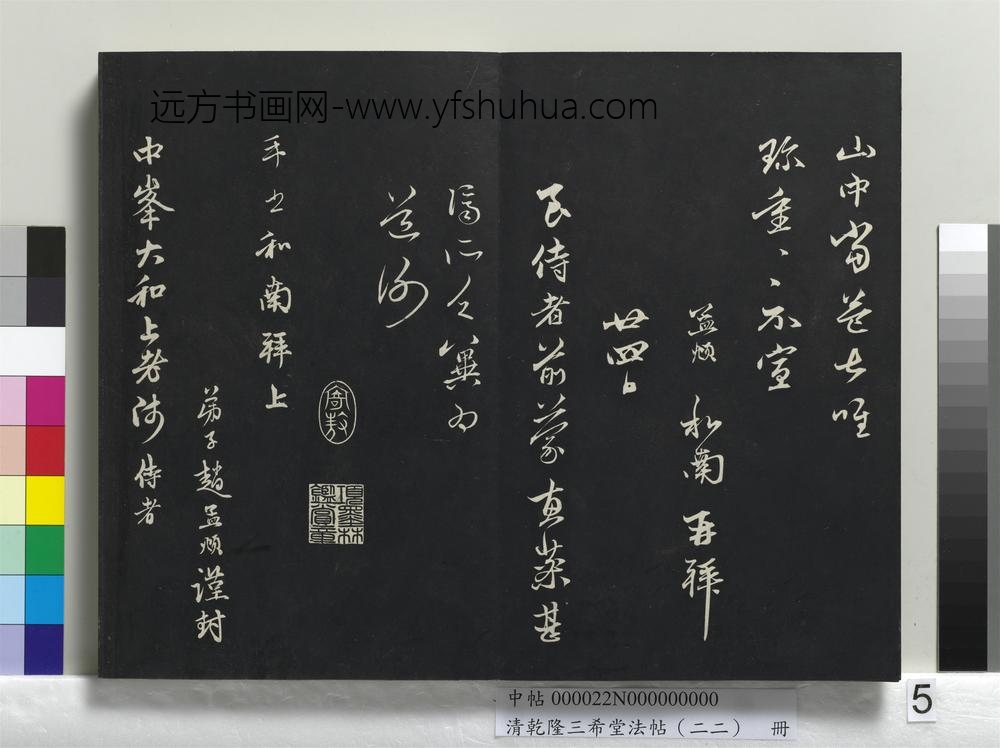 远方书画网-www.yfshuhua.com
山中當唯
珎重、、不宣
孟頫 和南再拜
廿四日
侍者前蒙惠藥甚
濟所乏冀為
道謝
寄敖
項墨林鑑賞章
手書和南拜上
弟子趙孟頫謹封
中峯大和上老師 侍者
中帖 000022N000000000
清乾隆三希堂法帖（二二） 冊
5